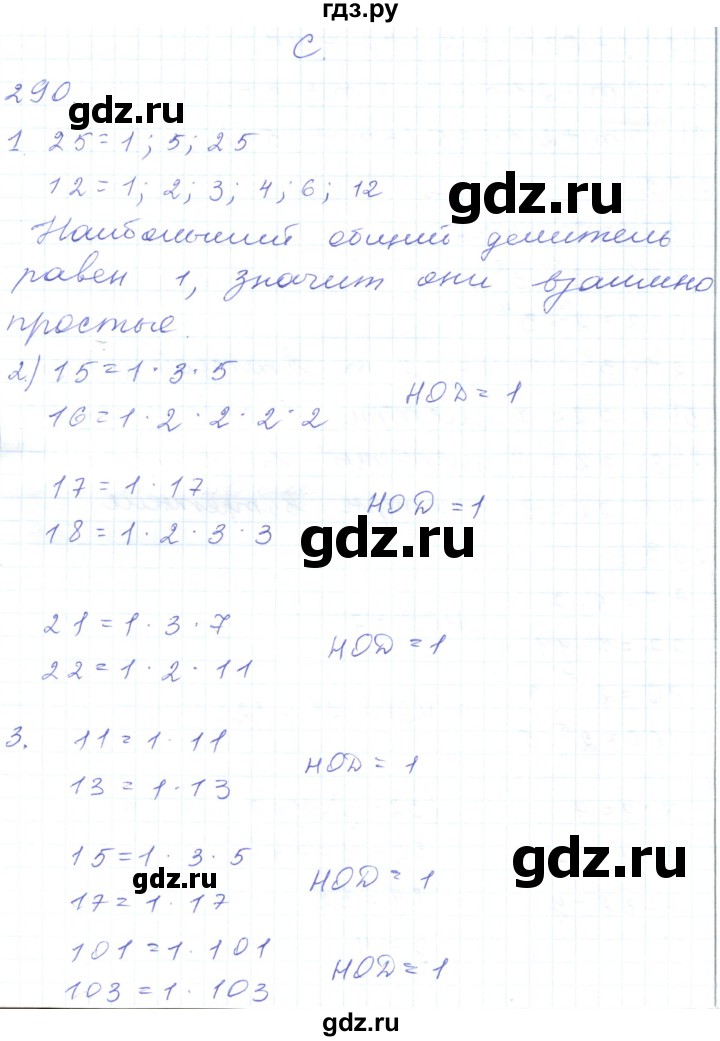 гдз.ру
С.
290
gdz.ru
1. 25 = 1; 5; 25
12 = 1; 2; 3; 4; 6; 12
gdz.ru
Наибольший общий делитель
равен 1, значит они взаимно
простые.
2.) 15 = 1 · 3 · 5
НОД = 1
16 = 1 · 2 · 2 · 2 · 2
17 = 1 · 17
НОД = 1
18 = 1 · 2 · 3 · 3
gdz.ru
21 = 1 · 3 · 7
НОД = 1
22 = 1 · 2 · 11
3. 11 = 1 · 11
НОД = 1
13 = 1 · 13
15 = 1 · 3 · 5
gdz.ru
gdz.ru
НОД = 1
17 = 1 · 17
101 = 1 · 101
НОД = 1
103 = 1 · 103
gdz.ru